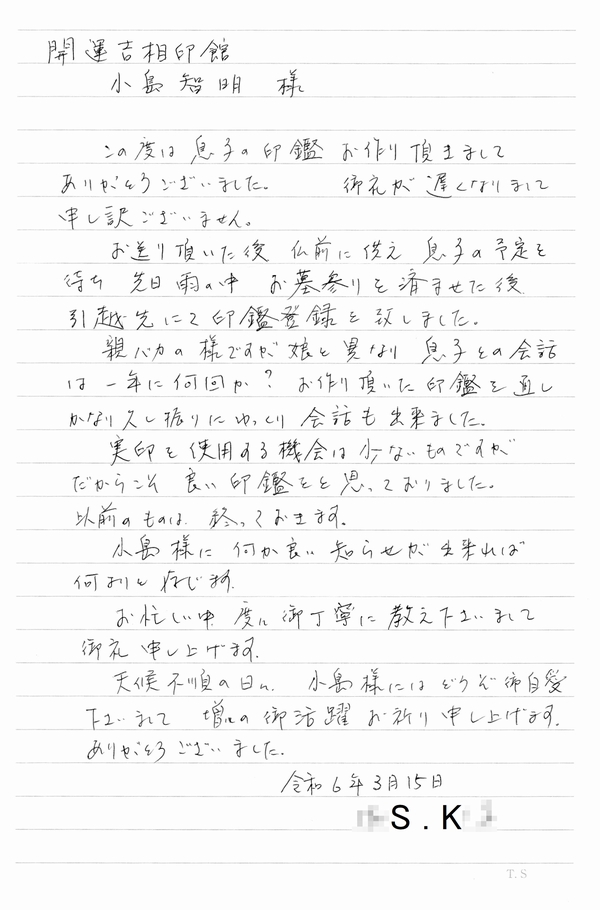 開運吉相印館
小島智明 様
この度は 息子の印鑑 お作り頂きまして
ありがとうございました。 御礼が遅くなりまして
申し訳ございません。
お送り頂いた後 仏前に供え 息子の予定を
待ち 先日雨の中 お墓参りを済ませた後
引越先にて印鑑登録を致しました。
親バカの様ですが娘と異なり 息子との会話
は一年に何回か? お作り頂いた印鑑を通し
かなり久し振りにゆっくり会話も出来ました。
実印を使用する機会は少ないものですが
だからこそ 良い印鑑をと思っておりました。
以前のものは 終っておきます。
小島様に何か良い知らせが出来れば
何よりと存じます。
お忙しい中 度々御丁寧に教え下さいまして
御礼申し上げます。
天候不順の日々、小島様にはどうぞ御自愛
下さいまして 増々の御活躍お祈り申し上げます。
ありがとうございました。
令和6年3月15日
S.K
T.S